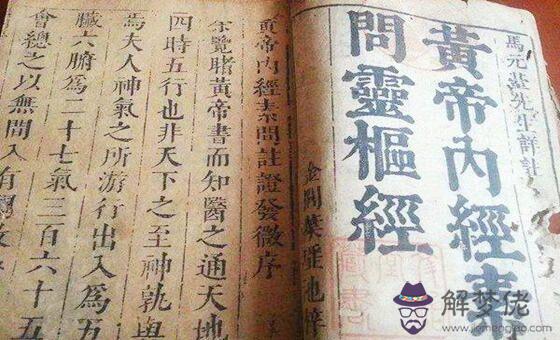 馬元臺先生
黃帝內經素
問靈樞經
金閶葉瑤池梓
黃帝內經素問註證發微序
余覽睹黃帝書而知醫之通天地
四時五行也非天下之至神孰與
焉夫人神氣之所游行出入為五
臟六腑為二十七氣三百六十五
會總之以無間入有
解梦佬
www.jiemenglao.com